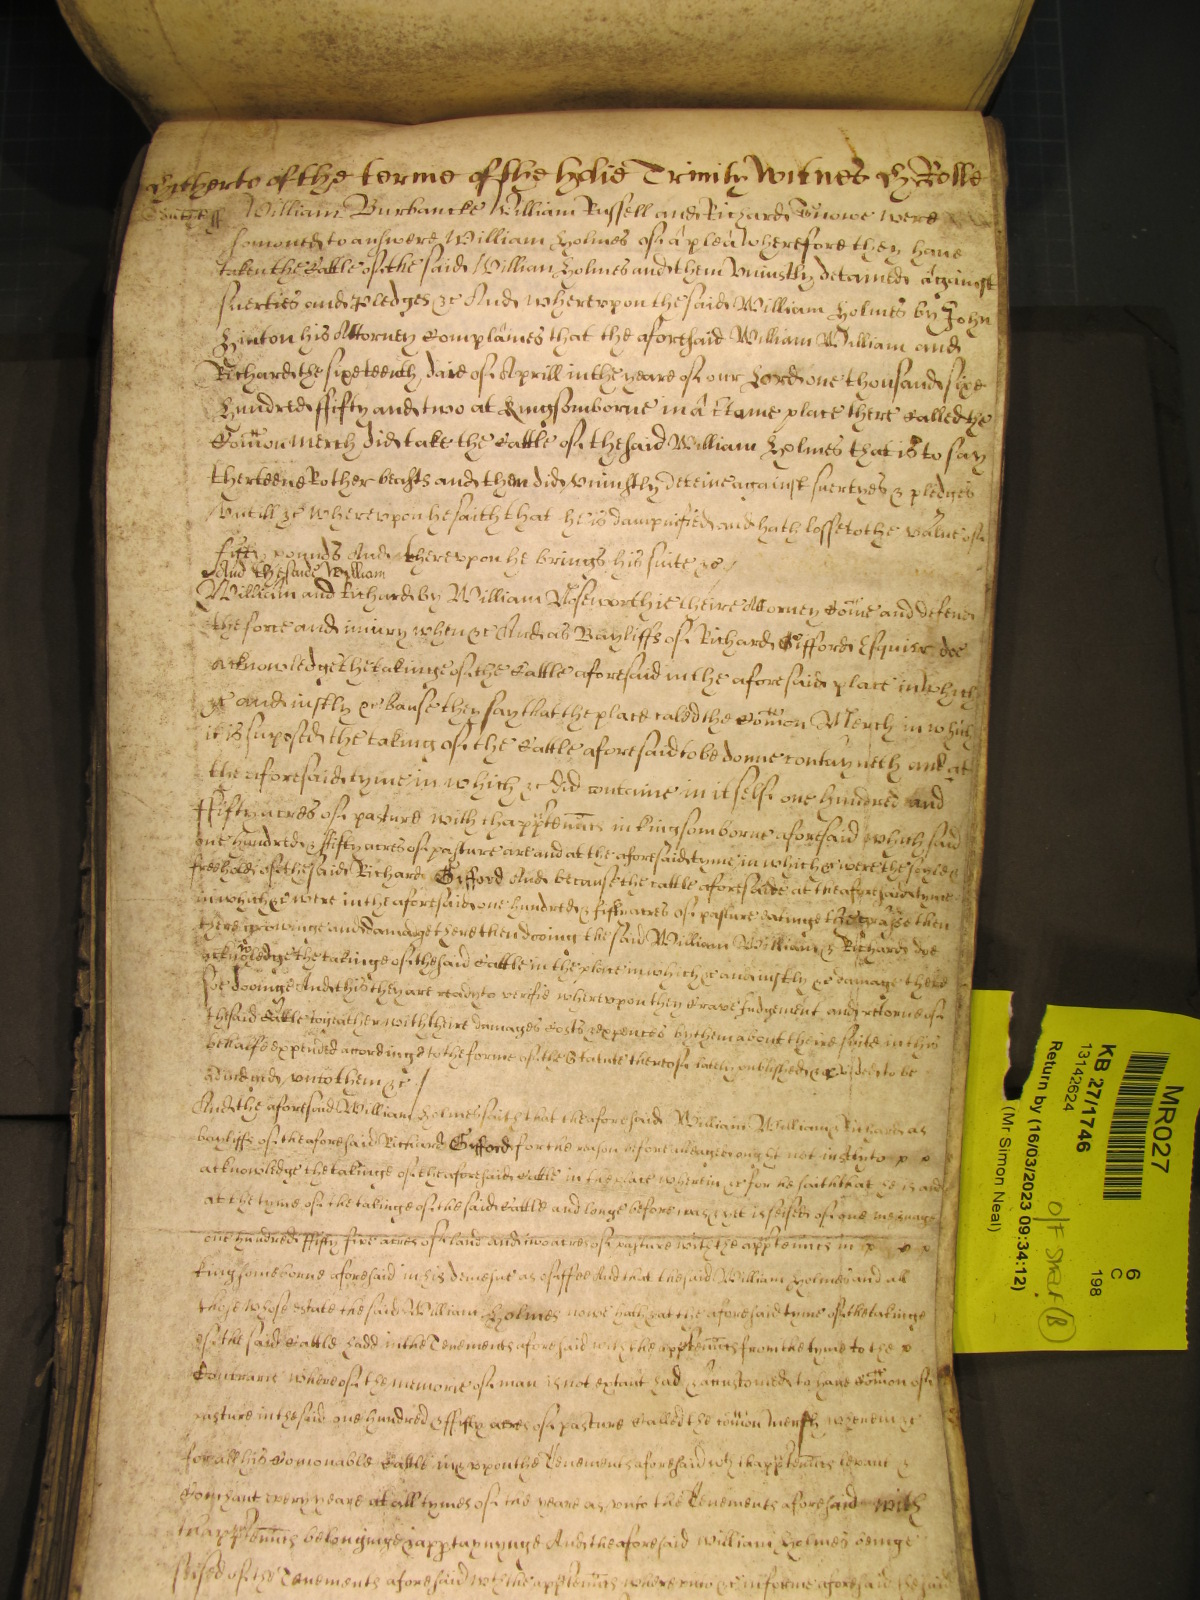 Hitherto of the terme of the holie Trinity Witnes H Rolle
William Burbancke William Russell and Richard were
somoned to answere William Holmes of a plea wherefore they have
taken the Cattle of the said William Holmes and them uniustly detained against
suerties and pledges &c And wherevpon the said William Holmes by John
Hinton his Attorney Complaines that the aforesaid William William and
Richard the sixteenth daie of Aprill in the yeare of our Lord one thousand sixe
hundred ffifty and two at Kingsomborne in a place there Called the
Com̄on Merch did take the Cattle of the said William Holmes that is to say
therteene Rother beasts and them did vniustly deteine against suertyes & pledges
vntill &c wherevpon he saith that he is dampnified and hath losse to the value of
fifty pounds And therevpon he brings his suite &c
And the said William
William and Richard by William Noseworthie theire Attorney Come and defend
the force and iniury when &c And as Bayliffs of Richard Gifford Esquier doe
acknowledge the takinge of the Cattle aforesaid in the aforesaid place in which
&c and iustly &c because they say that the place called the Com̄on Merch in which
it is suposed the taking of the Cattle aforesaid to be donne contayneth and at
the aforesaid tyme in which &c did containe in it selfe one hundred and
ffifty acres of pasture with thapptenncs in Kingsomborne aforesaid which said
one hundred & ffifty acres of pasture are and at the aforesaid tyme in which &c were the soyle &
freehold of the said Richard Gifford And because the cattle aforesaid at the aforesaid tyme
in which &c were in the aforesaid one hundred & fifty acres of pasture eatinge the grasse then
there growinge and damage there then dooing the said William William & Richard doe
acknowledge the takinge of the said Cattle in the place in which &c and iustly &c damage there
soe dooinge And this they are ready to verifie wherevpon they crave Judgement and retorne of
the said Cattle togeather with theire damages Costs & expences by them about theire suite in this
behalfe expended according to the forme of the Statute thereof lately published & provided to be
adiudged vnto them &c
And the aforesaid William Holmes saith that the aforesaid William William & Richard as
bayliffs of the aforesaid Richard Gifford for the reason before alleaged ought not iustly to
acknowledge the takinge of the aforesaid Cattle in the place wherein &c for he saith that he is and
at the tyme of the takinge of the said Cattle and longe before was & yet is seised of one mesuage
one hundred ffifty five acres of land and two acres of pasture with the apptenncs in
Kingsomeborne aforesaid in his demesne as of ffee And that the said William Holmes and all
those whose estate the said William Holmes nowe hath & at the aforesaid tyme of the takinge
of the said Cattle hadd in the Tenements aforesaid with the apptenncs from the tyme to the
Contrarie whereof the memorie of man is not extant had & accustomed to have Com̄on of
pasture in the said one hundred & ffifty acres of pasture Called the Com̄on Mersh wherein &c
for all his Comonable Cattle in & vpon the Tenements aforesaid wth thapptenncs levant &
Couchant every yeare at all tymes of the yeare as vnto the Tenements aforesaid with
thapptenncs belonginge & apptayninge And the aforesaid William Holmes beinge
seised of the Tenements aforesaid with the apptenncs wherevnto &c in forme aforesaid the said
MR027
KB 27/1746
13142624
Return by (16/03/2023 09:34:12)
(Mr Simon Neal)
6
C
198